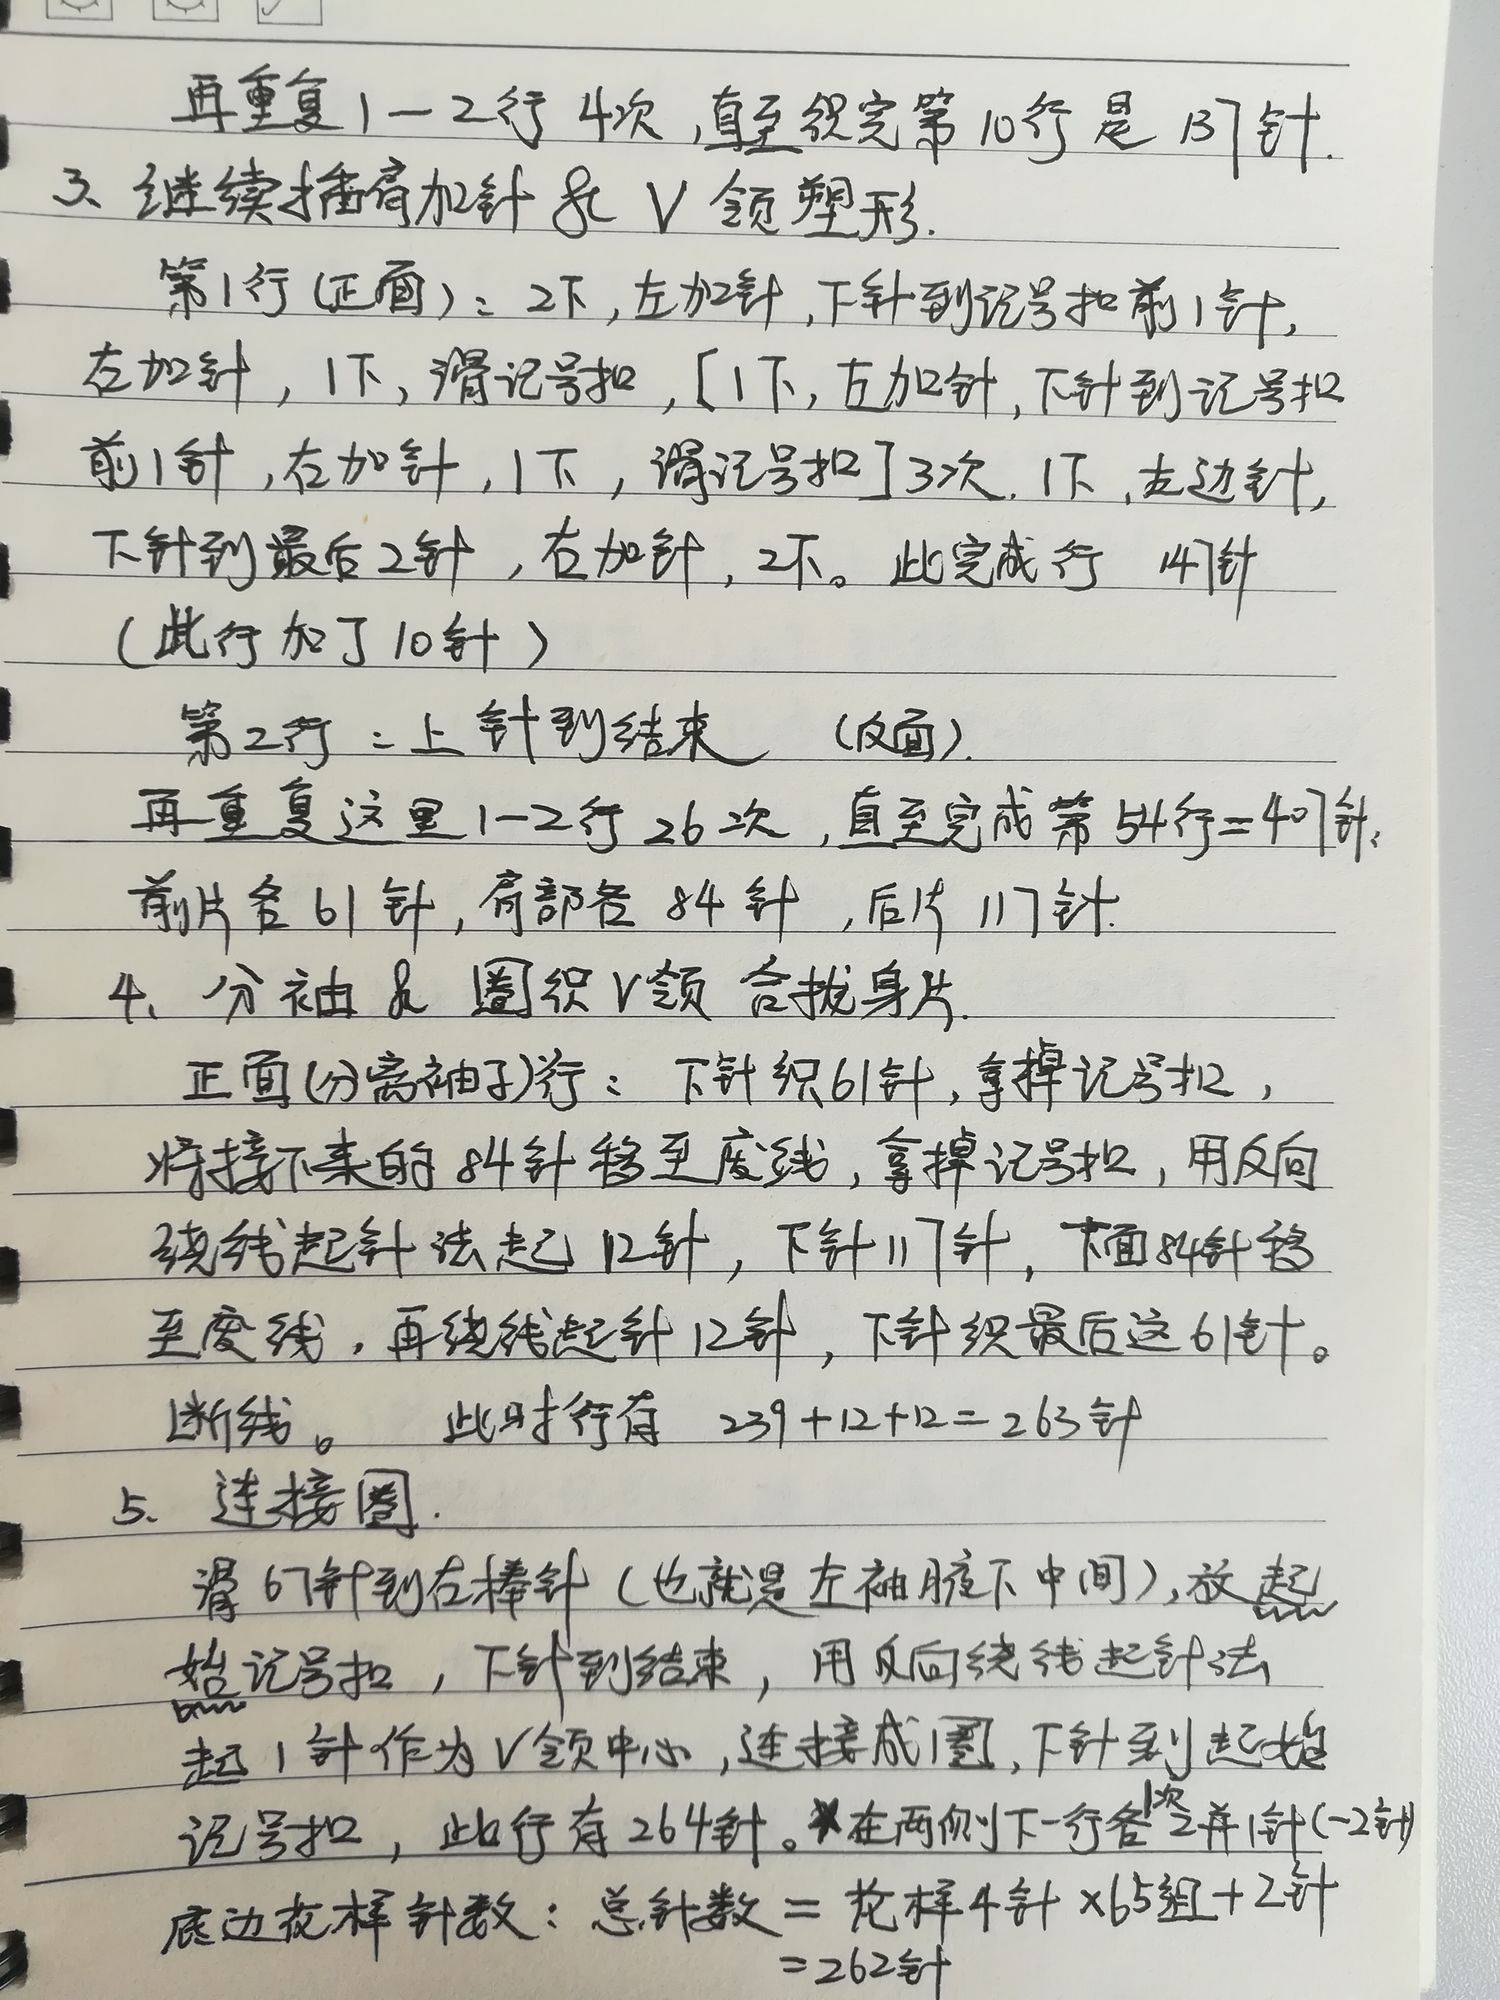 再重复1-2行4次,直至织完第10行是137针.
3、继续插肩加针 & V领塑形.
第1行(正面):2下,左加针,下针到记号扣前1针,
右加针,1下,滑记号扣,[1下,左加针,下针到记号扣
前1针,右加针,1下,滑记号扣]3次.1下,左边针,
下针到最后2针,右加针,2下。此完成行 147针
(此行加了10针)
第2行:上针到结束 (反面).
再重复这里1-2行26次,直至完成第54行=407针.
前片各61针,肩部各84针,后片117针.
4、分袖 & 圈织V领 合拢身片.
正面(分离袖子)行:下针织61针,拿掉记号扣,
将接下来的84针移至废线,拿掉记号扣,用反向
绕线起针法起12针,下针117针,下面84针移
至废线,再绕线起针12针,下针织最后这61针。
断线。 此时行有 239+12+12=263针
5、连接圈.
滑67针到右棒针(也就是左袖腋下中间),放起
始记号扣,下针到结束,用反向绕线起针法
起1针作为V领中心,连接成1圈,下针到起始
记号扣,此行有264针。*在两侧下一行各1次2并1针(-2针)
底边花样针数:总针数=花样4针×65组+2针
=262针